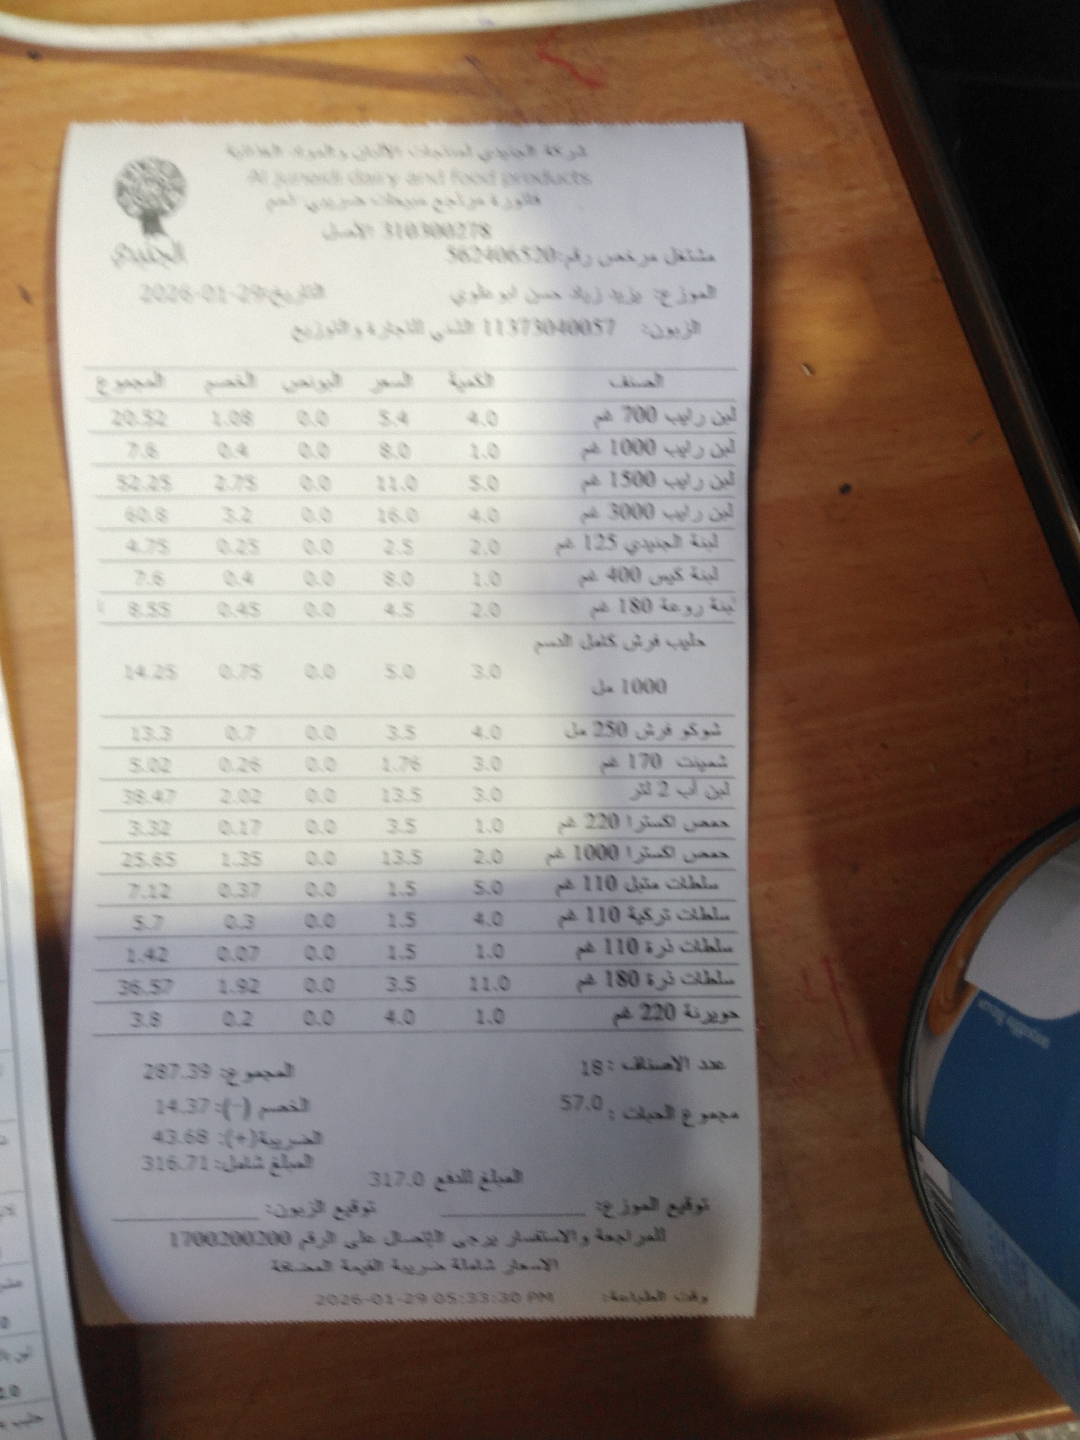 شركة الجنيدي لمنتجات الألبان والمواد الغذائية
Al Juneidi dairy and food products
فاتورة مرتجع مبيعات ضريبي رقم
310300278 الأصل
الجنيدي
مشتغل مرخص رقم:562406520
الموزع: يزيد زياد حسن ابو علوي التاريخ:2026-01-29
الزبون: 11373040057 للتجارة والتوزيع
الصنف الكمية السعر البونص الخصم المجموع
لبن رايب 700 غم 4.0 5.4 0.0 1.08 20.52
لبن رايب 1000 غم 1.0 8.0 0.0 0.4 7.6
لبن رايب 1500 غم 5.0 11.0 0.0 2.75 52.25
لبن رايب 3000 غم 4.0 16.0 0.0 3.2 60.8
لبنة الجنيدي 125 غم 2.0 2.5 0.0 0.25 4.75
لبنة كيس 400 غم 1.0 8.0 0.0 0.4 7.6
لبنة روعة 180 غم 2.0 4.5 0.0 0.45 8.55
حليب فرش كامل الدسم
1000 مل 3.0 5.0 0.0 0.75 14.25
شوكو فرش 250 مل 4.0 3.5 0.0 0.7 13.3
شمينت 170 غم 3.0 1.76 0.0 0.26 5.02
لبن أب 2 لتر 3.0 13.5 0.0 2.02 38.47
حمص اكسترا 220 غم 1.0 3.5 0.0 0.17 3.32
حمص اكسترا 1000 غم 2.0 13.5 0.0 1.35 25.65
سلطات متبل 110 غم 5.0 1.5 0.0 0.37 7.12
سلطات تركية 110 غم 4.0 1.5 0.0 0.3 5.7
سلطات ذرة 110 غم 1.0 1.5 0.0 0.07 1.42
سلطات ذرة 180 غم 11.0 3.5 0.0 1.92 36.57
حويرنة 220 غم 1.0 4.0 0.0 0.2 3.8
عدد الاصناف :18 المجموع: 287.39
مجموع الحبات : 57.0 الخصم (-): 14.37
الضريبة(+): 43.68
المبلغ شامل: 316.71
المبلغ للدفع 317.0
توقيع الموزع: توقيع الزبون:
للمراجعة والاستفسار يرجى الإتصال على الرقم 1700200200
الاسعار شاملة ضريبة القيمة المضافة
وقت الطباعة: 2026-01-29 05:33:30 PM